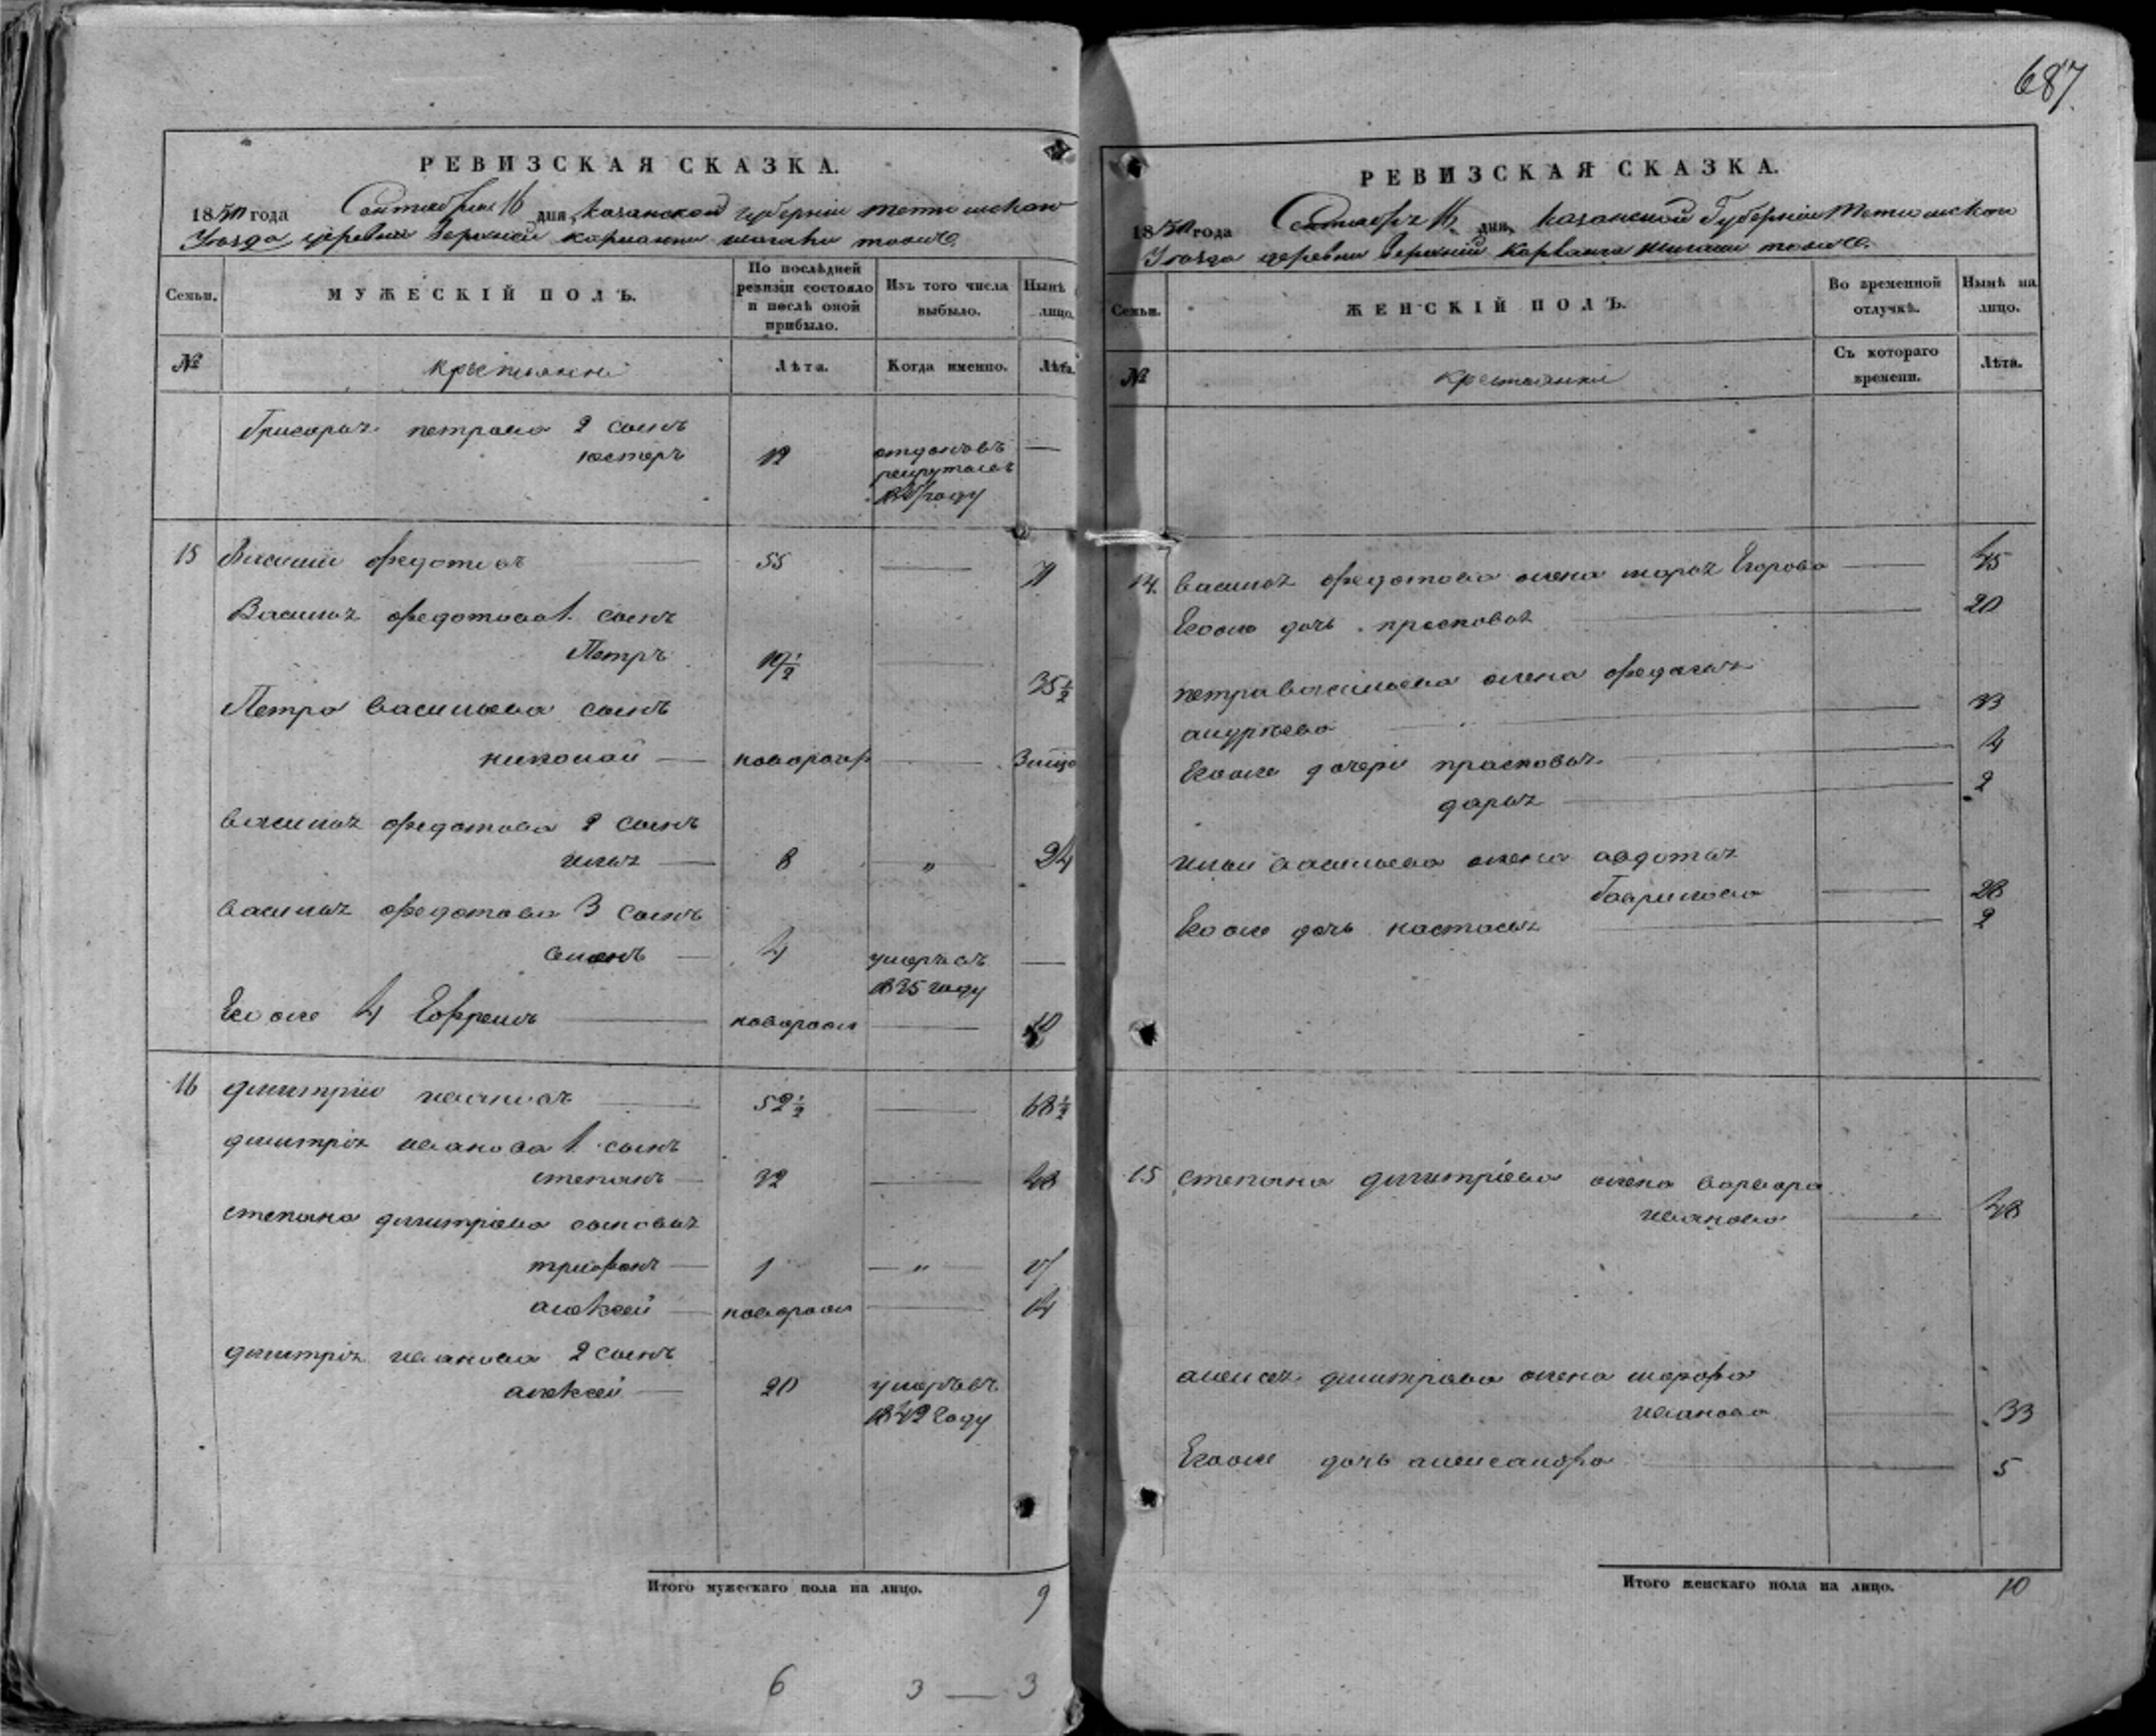 РЕВИЗСКАЯ СКАЗКА.
1850 года Сентября 16 дня, казанской губернiи тетюшскаго
Уезда деревни верхней
Семьи.
МУЖЕСКIЙ ПОЛЪ.
По послѣдней ревизiи состояло и послѣ оной прибыло.
Изъ того числа выбыло.
Нынѣ лицо.
№
крестьяни
Лѣта.
Когда именно.
Лѣта.
Григорья петрова 2 сынъ
нестеръ 12 отданъ въ —
рекруты
году
15 Василiй федотовъ — 55 — 71
Василья федотова 1. сынъ
Петръ 19½ — 35½
Петра васильева сынъ
николай — новорож —
василья федотова 2 сынъ
илья — 8 „ 24
василья федотова 3 сынъ
4 умеръ въ —
1835 году
Его же 4 Ефремъ — новорож —
16 димитрiй ивановъ — 52½ — 68½
димитрiя иванова 1. сынъ
степанъ — 32 — 48
степана димитрiева сыновья
трифонъ — 1 — „ 17
алексей — новорож — 14
димитрiя иванова 2 сынъ
алексей — 20 умеръ въ
1849 году
Итого мужескаго пола на лицо. 9
6 3 — 3
687
РЕВИЗСКАЯ СКАЗКА.
1850 года Сентября 16 дня, казанской Губернiи Тетюшскаго
Уезда деревни верхнiй
Семьи.
ЖЕНСКIЙ ПОЛЪ.
Во временной отлучкѣ.
Нынѣ на лицо.
№
крестьянки
Съ котораго времени.
Лѣта.
14. василья федотова жена марья Егорова — 45
Его же дочь прасковья — 20
петра васильева жена федосья
— 33
Его же дочери прасковья — 4
дарья — 2
ильи васильева жена авдотья
Гаврилова — 28
Его же дочь настасья — 2
15 степана димитрiева жена варвара
иванова — 48
алексея димитрiева жена марфа
иванова — 33
Его же дочь александра — 5
Итого женскаго пола на лицо. 10